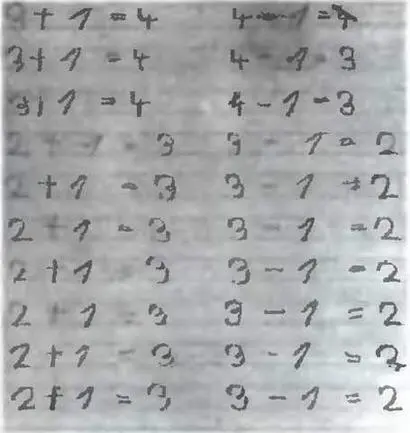 3+1=4 4-1=4
3+1-4 4-1-3
3+1=4 4-1-3
2+1-3 3-1=2
2+1-3 3-1=2
2+1-3 3-1=2
2+1 3 3-1=2
2+1 3 3-1=2
2+1-3 3-1=2
2+1=3 3-1=2